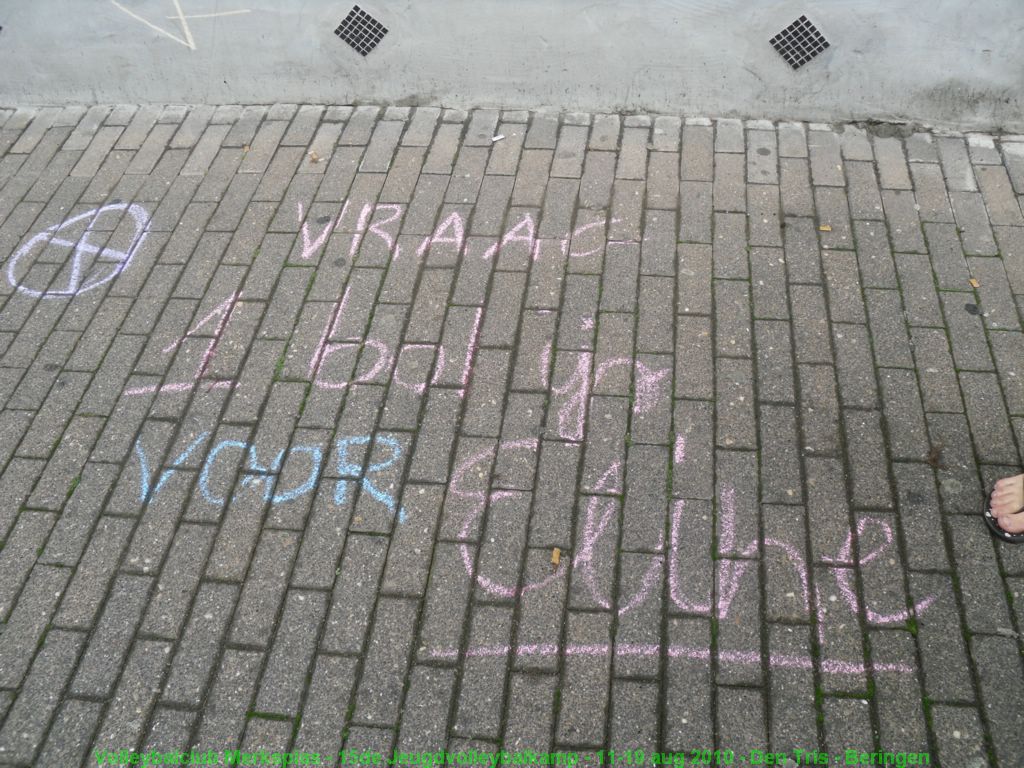 VRAAG
1 bolijs
VOOR
Eline
Volleybalclub Merksplas - 15de Jeugdvolleybalkamp - 11-19 aug 2010 - Den Tris - Beringen